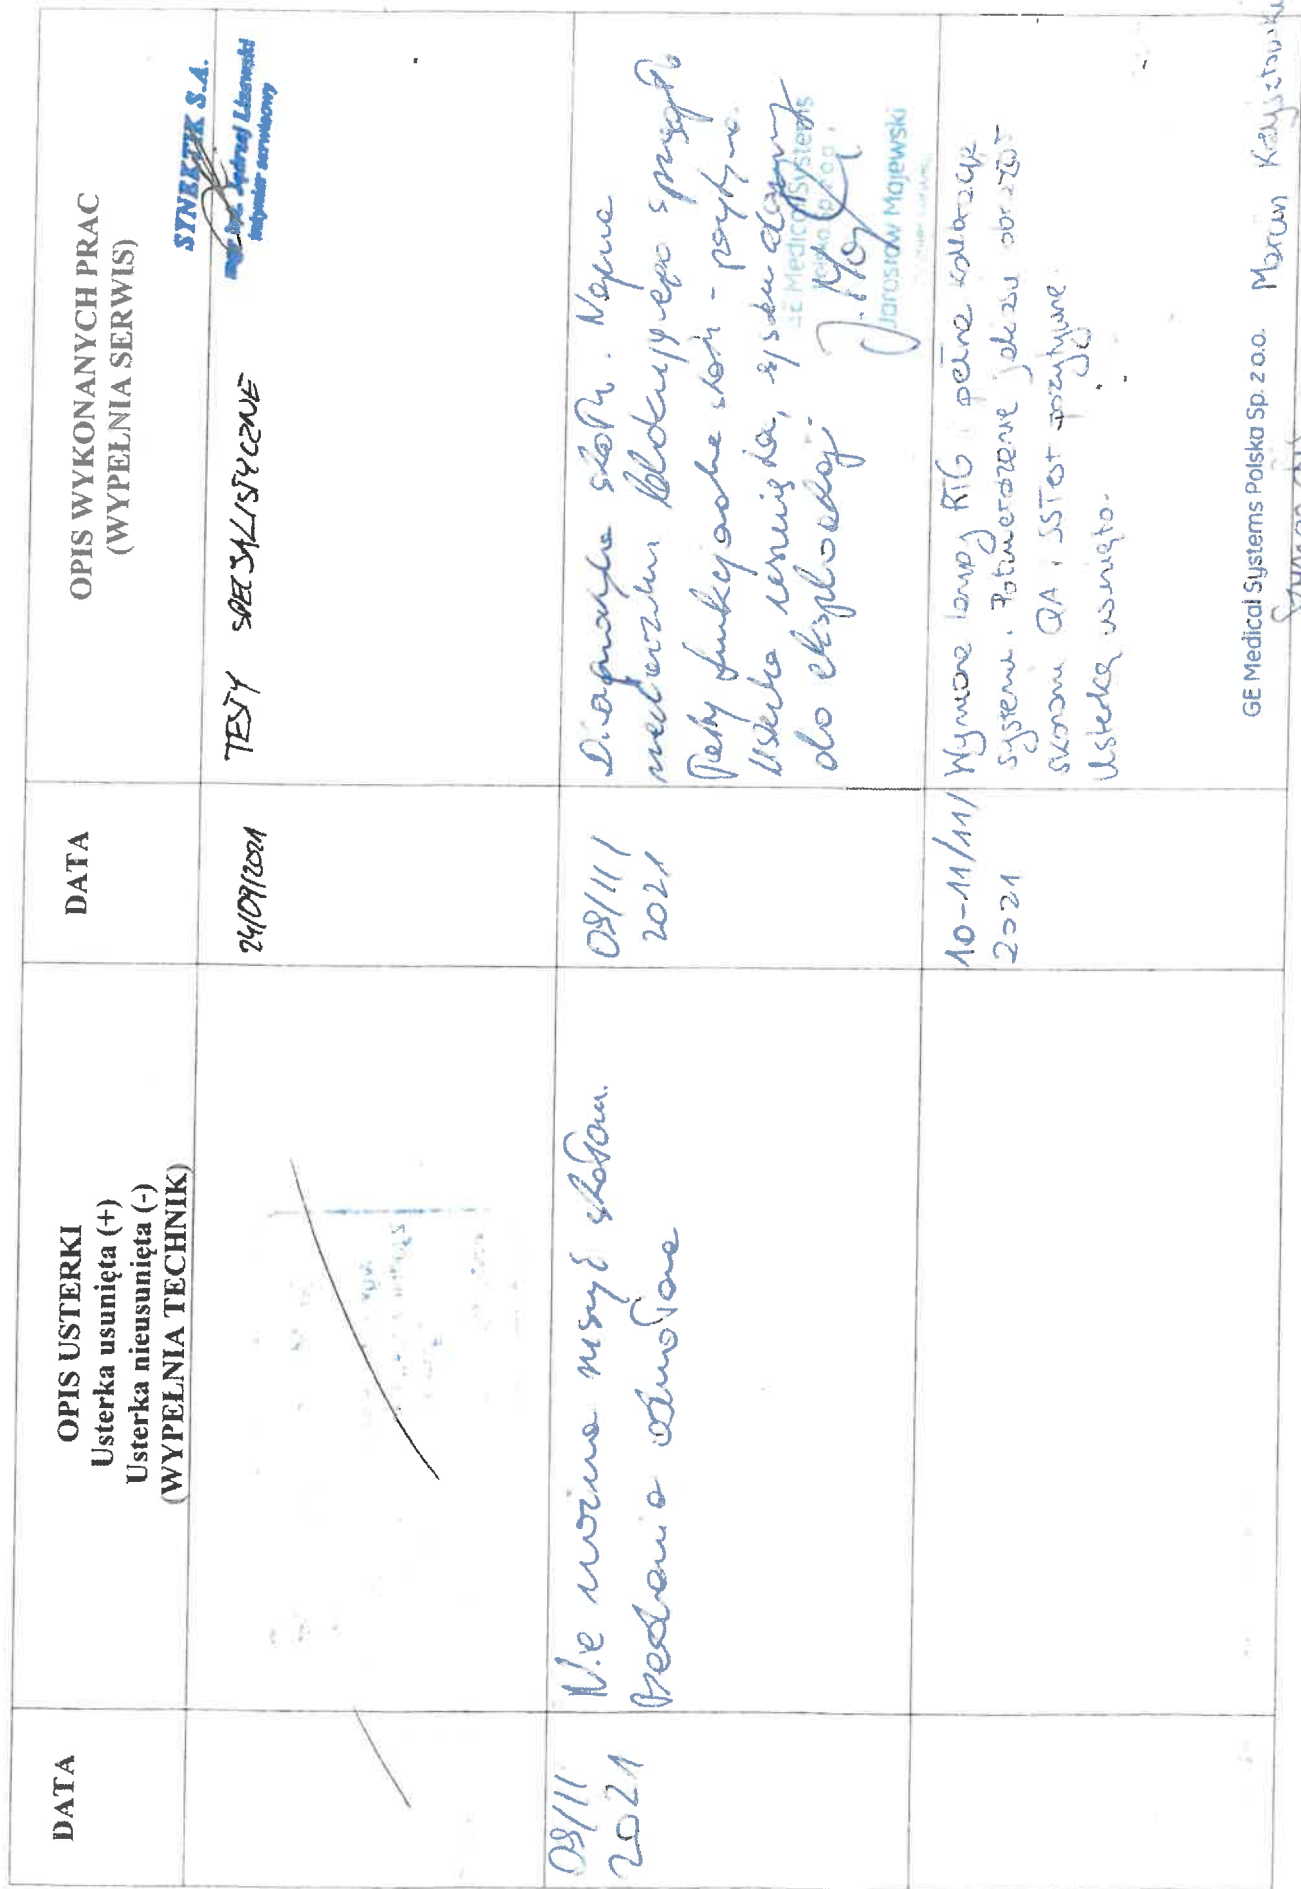 DATA
OPIS USTERKI
Usterka usunięta (+)
Usterka nieusunięta (-)
(WYPEŁNIA TECHNIK)
DATA
OPIS WYKONANYCH PRAC
(WYPEŁNIA SERWIS)
24/09/2021
TESTY SPECJALISTYCZNE
SYNEKTIK S.A.
mgr inż. Andrzej Lisowski
inżynier serwisowy
09/11
2021
Nie można ruszyć stołem.
Badania odwołane
09/11/
2021
Diagnostyka stołu. Naprawa
mechanizmu blokującego sprzęgło
Testy funkcjonalne stołu - pozytywne.
Usterka usunięta, system
do eksploatacji.
GE Medical Systems
Polska Sp. z o.o.
J. Maj
Jarosław Majewski
10-11/11/
2021
Wymiana lampy RTG i pełna kalibracja
systemu. Potwierdzenie jakości obrazów
skanami QA i SSTest pozytywne.
Usterka usunięta.
GE Medical Systems Polska Sp. z o.o.
Marcin